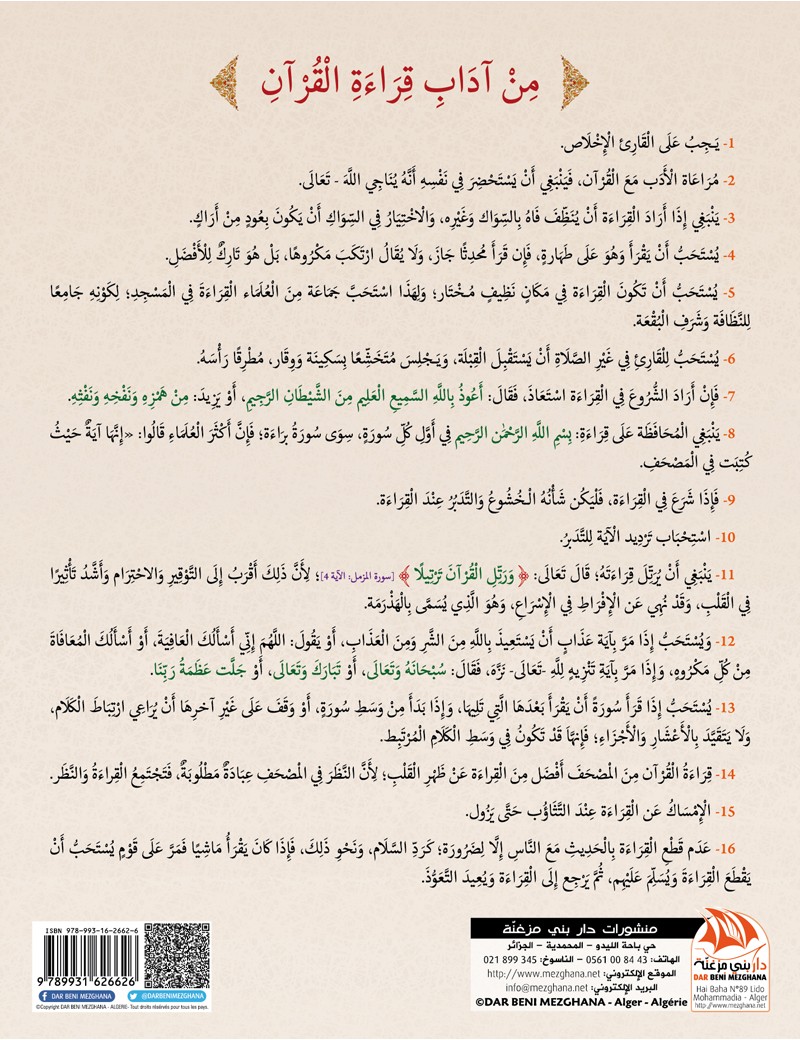 مِنْ آدَابِ قِرَاءَةِ الْقُرْآنِ
1- يَجِبُ عَلَى الْقَارِئِ الْإِخْلَاص.
2- مُرَاعَاة الْأَدَب مَعَ الْقُرْآن، فَيَنْبَغِي أَنْ يَسْتَحْضِرَ فِي نَفْسِهِ أَنَّهُ يُنَاجِي اللَّهَ - تَعَالَى.
3- يَنْبَغِي إِذَا أَرَادَ الْقِرَاءَة أَنْ يُنَظِّفَ فَاهُ بِالسِّوَاك وَغَيْرِه، وَالْاخْتِيَار فِي السِّوَاكِ أَنْ يَكُونَ بِعُودٍ مِنْ أَرَاكٍ.
4- يُسْتَحَبُّ أَنْ يَقْرَأَ وَهُوَ عَلَى طَهَارَةٍ، فَإِن قَرَأَ مُحدِثًا جَازَ، وَلَا يُقَالُ ارْتَكَبَ مَكْرُوهًا، بَلْ هُوَ تَارِكٌ لِلْأَفْضَلِ.
5- يُسْتَحَبُّ أَنْ تَكُونَ الْقِرَاءَة فِي مَكَانٍ نَظِيفٍ مُخْتَار؛ وَلِهَذَا اسْتَحَبَّ جَمَاعَة مِنَ الْعُلَمَاء الْقِرَاءَةَ فِي الْمَسْجِدِ؛ لِكَوْنِهِ جَامِعًا
لِلنَّظَافَة وَشَرَفِ الْبُقْعَة.
6- يُسْتَحَبُّ لِلْقَارِئِ فِي غَيْرِ الصَّلَاةِ أَنْ يَسْتَقْبِلَ الْقِبْلَة، وَيَجْلِسَ مُتَخَشِّعًا بِسَكِينَة وَوِقَار، مُطْرِقًا رَأْسُهُ.
7- فَإِنْ أَرَادَ الشُّرُوعَ فِي الْقِرَاءَة اسْتَعَاذَ، فَقَالَ: أَعُوذُ بِاللَّهِ السَّمِيعِ الْعَلِيمِ مِنَ الشَّيْطَانِ الرَّجِيمِ، أَوْ يَزِيدَ: مِنْ هَمْزِهِ وَنَفْخِهِ وَنَفْثِهِ.
8- يَنْبَغِي الْمُحَافَظَة عَلَى قِرَاءَةِ: بِسْمِ اللَّهِ الرَّحْمَٰنِ الرَّحِيمِ فِي أَوَّلِ كُلِّ سُورَةٍ، سِوَى سُورَةُ بَرَاءَة؛ فَإِنَّ أَكْثَرَ الْعُلَمَاءِ قَالُوا: «إِنَّهَا آيَةٌ حَيْثُ
كُتِبَت فِي الْمَصْحَفِ.
9- فَإِذَا شَرَعَ فِي الْقِرَاءَة، فَلْيَكُن شَأْنُهُ الْخُشُوعُ وَالتَّدَبُرُ عِنْدَ الْقِرَاءَة.
10- اسْتِحْبَاب تَرْدِيد الْآيَة لِلتَّدَبُر.
11- يَنْبَغِي أَنْ يُرَتِّل قِرَاءَتَهُ؛ قَالَ تَعَالَى: ﴿ وَرَتِّلِ الْقُرْآنَ تَرْتِيلًا ﴾ [سورة المزمل: الآية 4]؛ لِأَنَّ ذَلِكَ أَقْرَبُ إِلَى التَّوْقِيرِ وَالاحْتِرَام وَأَشَّدُ تَأْثِيرًا
فِي الْقَلْبِ، وَقَدْ نُهِي عَنِ الْإِفْرَاطِ فِي الْإِسْرَاعِ، وَهُوَ الَّذِي يُسَمَّى بِالْهَذْرَمَة.
12- وَيُسْتَحَبُّ إِذَا مَرَّ بِآيَة عَذَابٍ أَنْ يَسْتَعِيذَ بِاللَّهِ مِنَ الشَّرِ وَمِنَ الْعَذَابِ، أَوْ يَقُولَ: اللَّهُمَ إِنِّي أَسْأَلُكَ الْعَافِيَةَ، أَوْ أَسْأَلُكَ الْمُعَافَاةَ
مِنْ كُلِّ مَكْرُوهٍ، وَإِذَا مَرَّ بِآيَةِ تَنْزِيهٍ لِلَّهِ -تَعَالَى- نَزَّه، فَقَالَ: سُبْحَانَهُ وَتَعَالَى، أَوْ تَبَارَكَ وَتَعَالَى، أَوْ جَلَّت عَظَمَةُ رَبِّنَا.
13- يُسْتَحَبُّ إِذَا قَرَأَ سُورَةً أَنْ يَقْرَأَ بَعْدَهَا الَّتِي تَلِيهَا، وَإِذَا بَدَأَ مِنْ وَسَطِ سُورَةٍ، أَوْ وَقَفَ عَلَى غَيْرِ آخرِهَا أَنْ يُرَاعِي ارْتِبَاطَ الْكَلَام،
وَلَا يَتَقَيَّدَ بِالْأَعْشَارِ وَالْأَجْزَاءِ؛ فَإِنهَا قَدْ تَكُونُ فِي وَسَطِ الْكَلَامِ الْمُرْتَبِط.
14- قِرَاءَةُ الْقُرْآن مِنَ الْمَصْحَفِ أَفْضَل مِنَ الْقِرَاءَة عَنْ ظَهْرِ الْقَلْبِ؛ لِأَنَّ النَّظَرَ فِي الْمَصْحَفِ عِبَادَةٌ مَطْلُوبَةٌ، فَتَجْتَمِعُ الْقِرَاءَةُ وَالنَّظَر.
15- الْإِمْسَاكُ عَنِ الْقِرَاءَة عِنْدَ التَّثَاؤُب حَتَّى يَزُول.
16- عَدَم قَطْعِ الْقِرَاءَة بِالْحَدِيثِ مَعَ النَّاسِ إِلَّا لِضَرُورَة؛ كَرَدِّ السَّلَام، وَنَحْوِ ذَلِكَ، فَإِذَا كَانَ يَقْرَأُ مَاشِيًا فَمَرَّ عَلَى قَوْمٍ يُسْتَحَبُّ أَنْ
يَقْطَعَ الْقِرَاءَةَ وَيُسَلِّمَ عَلَيْهِم، ثُمَّ يَرْجِع إِلَى الْقِرَاءَة وَيُعِيدَ التَّعَوُّذَ.
ISBN 978-993-16-2662-6
9 789931 626626
DAR BENI MEZGHANA
@DARBENIMEZGHANA
©Copyright DAR BENI MEZGHANA - ALGERIE- Tout droits réservés pour tous les pays.
منشورات دار بني مزغنّة
حي باحة الليدو – المحمدية – الجزائر
الهاتف: 43 84 00 0561 – الناسوخ: 345 899 021
الموقع الإلكتروني: http://www.mezghana.net
البريد الإلكتروني: info@mezghana.net
©DAR BENI MEZGHANA - Alger - Algérie
دار بني مزغنّة
DAR BENI MEZGHANA
Hai Baha N°89 Lido
Mohammadia - Alger
http://www.mezghana.net